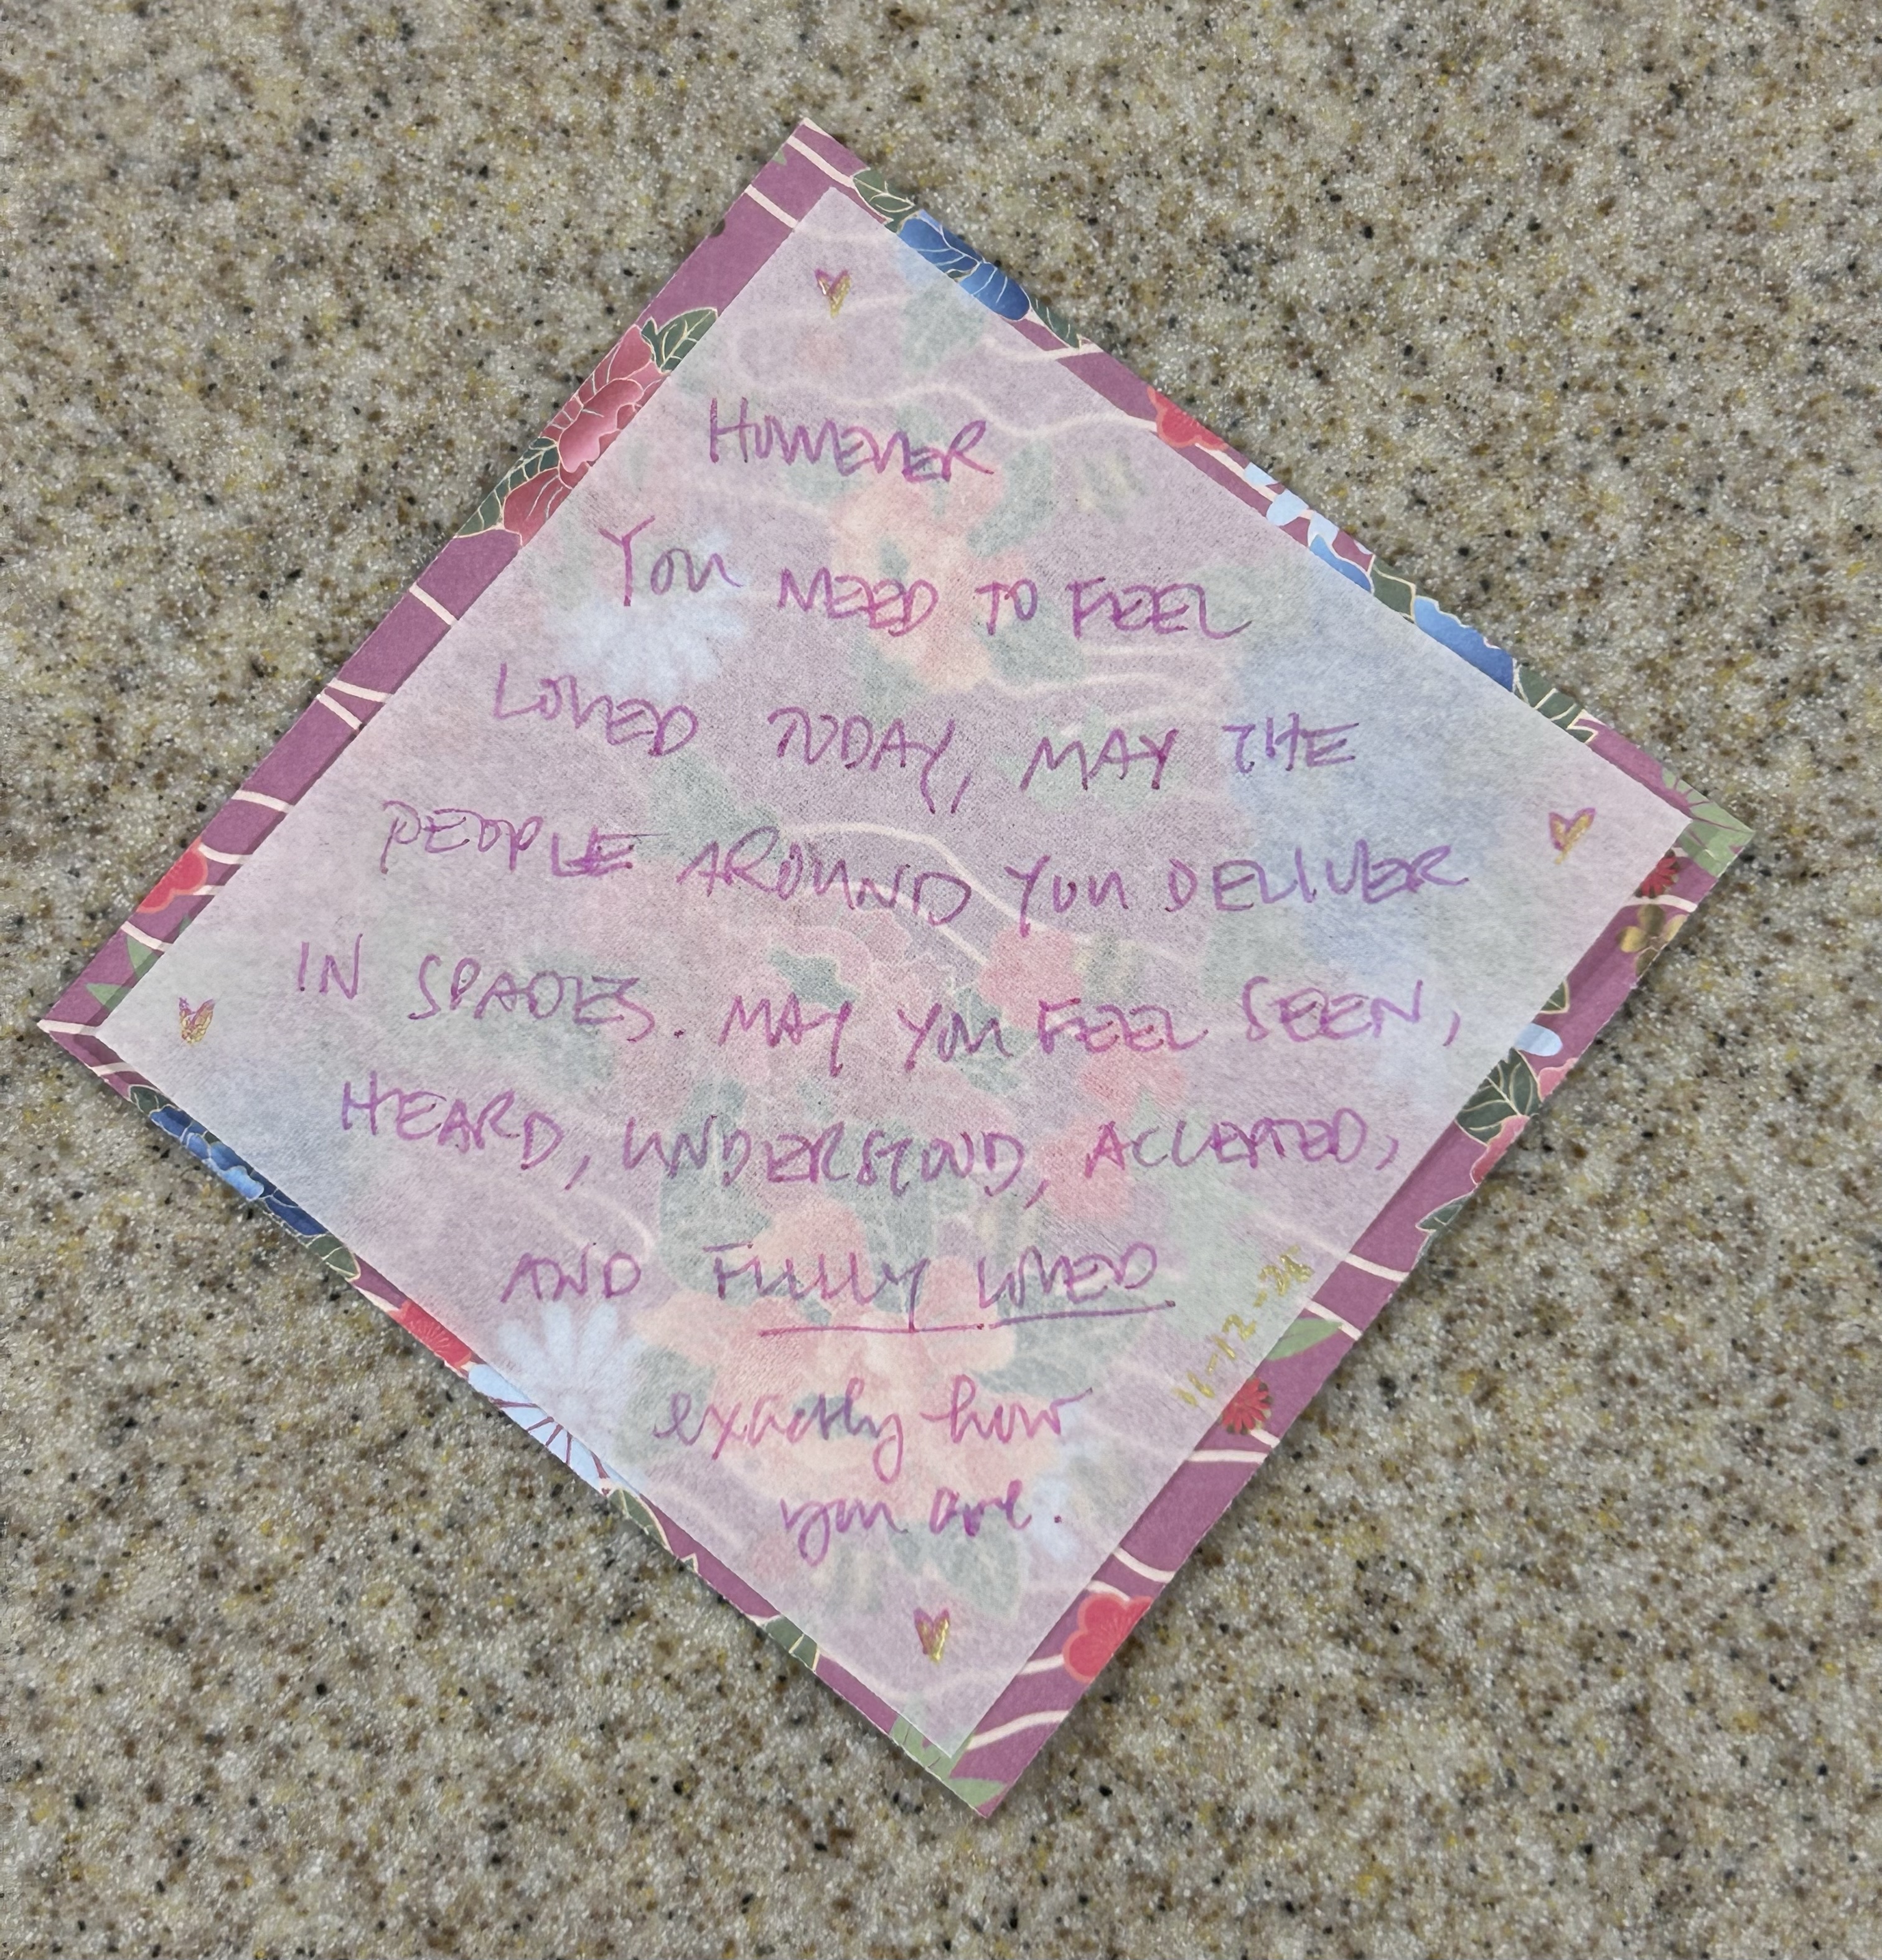 HOWEVER
YOU NEED TO FEEL
LOVED TODAY, MAY THE
PEOPLE AROUND YOU DELIVER
IN SPADES. MAY YOU FEEL SEEN,
HEARD, UNDERSTOOD, ACCEPTED,
AND FULLY LOVED
exactly how
you are.
11-12-25